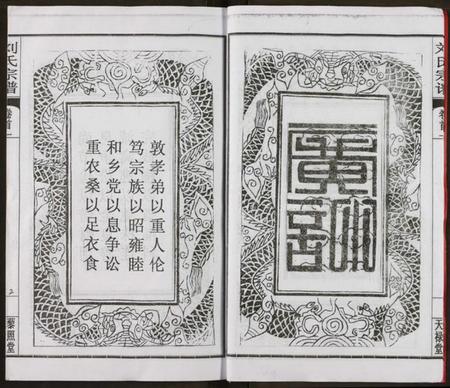 刘氏宗谱
卷首
天禄堂
敦孝弟以重人伦
笃宗族以昭雍睦
和乡党以息争讼
重农桑以足衣食
刘氏宗谱
卷首
2
藜照堂